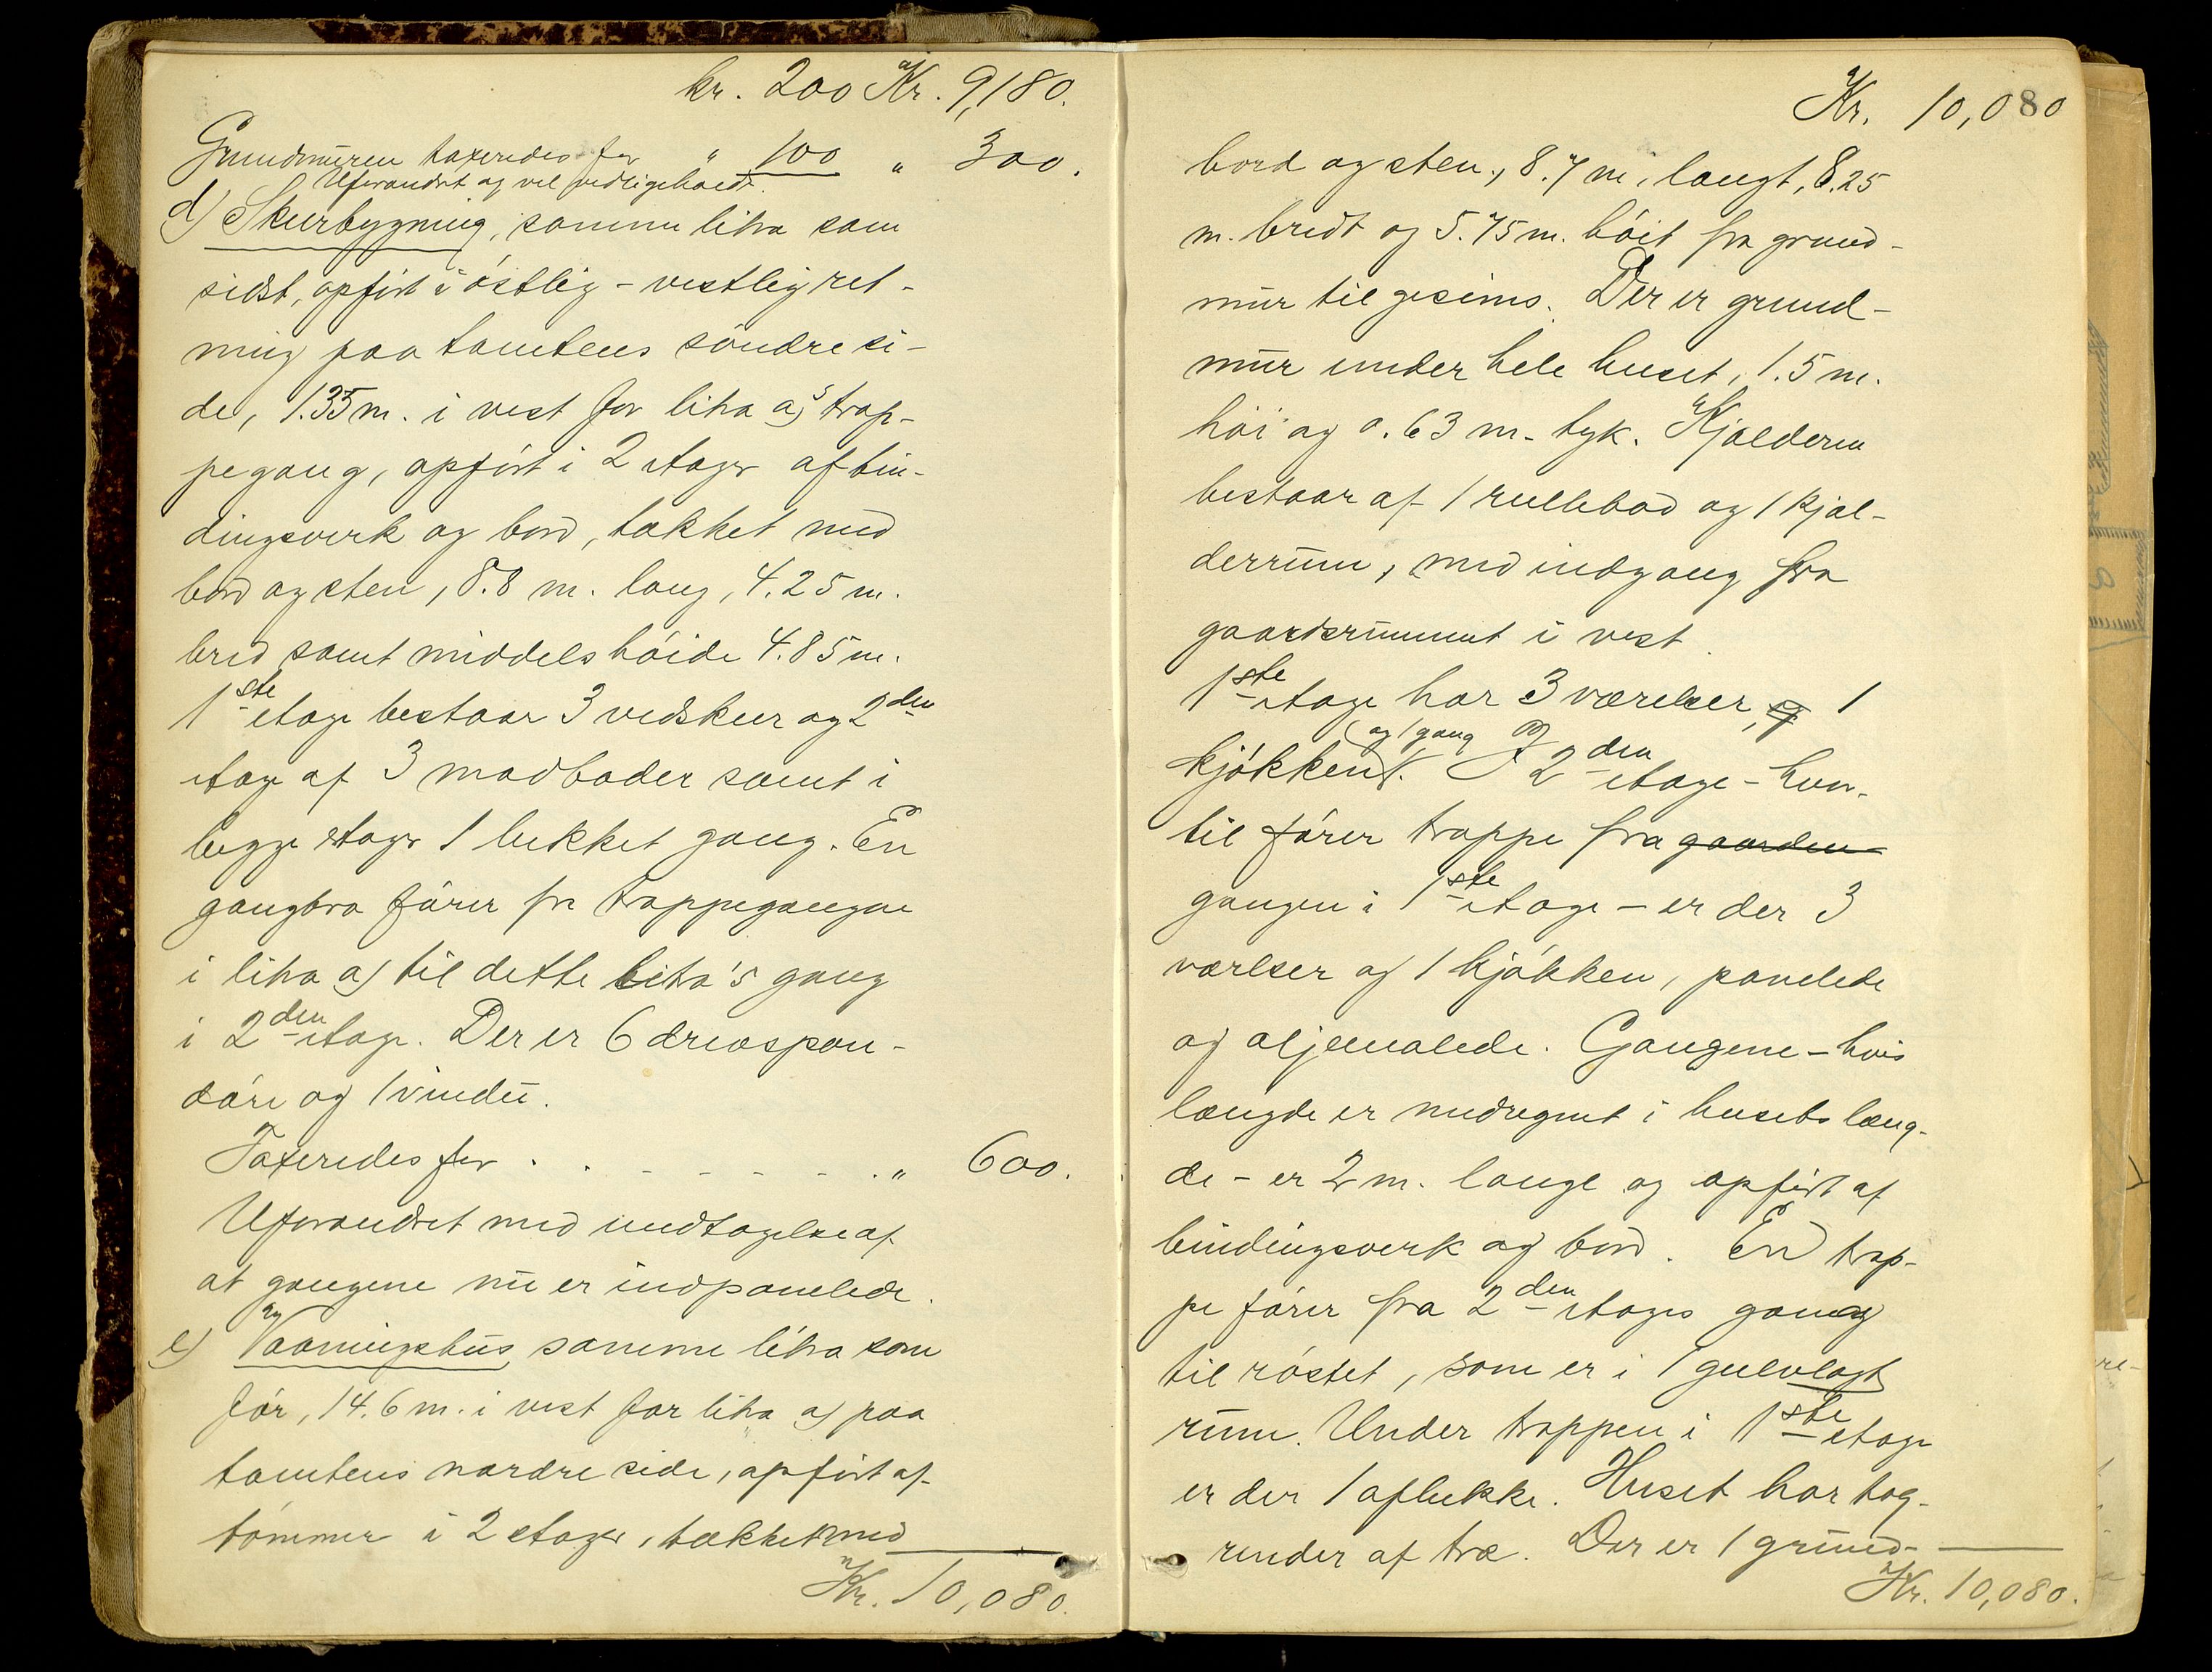 kr. 200 Kr. 9,180.
Grundmüren taxeredes for " 100 " 300.
Uforandret og vel vedligeholdt.
d) Skurbygning, samme litra som
sidst, opfört i östlig - vestlig ret-
ning paa tomtens söndre si-
de, 1.35 m. i vest for litra a)s trap-
pegang, opfört i 2 etager af bin-
dingsverk og bord, tækket med
bord og sten, 8.8 m. lang, 4.25 m.
bred samt middelshöide 4.85 m.
1ste etage bestaar 3 vedskur og 2den
etage af 3 madboder samt i
begge etager 1 lukket gang. En
gangbro förer fra trappegangen
i litra a) til dette litra's gang
i 2den etage. Der er 6 drevspon-
döre og 1 vindü.
Taxeredes for . . - - - - - . " 600.
Uforandret med undtagelse af
at gangene nü er indpanelede.
e) Vaaningshüs samme litra som
för, 14.6 m. i vest for litra a) paa
tomtens nordre side, opfört af
tömmer i 2 etager, tækket med
Kr. 10,080.
Kr. 10,080
bord og sten, 8.7 m. langt, 8.25
m. bredt og 5.75 m. höit fra grund-
mür til gesims. Der er grund-
mür under hele huset, 1.5 m.
höi og 0.63 m. tyk. Kjælderen
bestaar af 1 rullebod og 1 kjæl-
derrüm, med indgang fra
gaardsrümmet i vest.
1ste etage har 3 værelser, og 1
kjökken og 1 gang. I 2den etage - hvor-
til förer trappe fra gaarden
gangen i 1ste etage - er der 3
værlser og 1 kjökken, panelede
og oljemalede. Gangene - hvis
længde er medregnet i husets læng-
de - er 2 m. lange og opfört af
bindingsverk og bord. En trap-
pe förer fra 2den etages gang
til röstet, som er i 1 gulvlagt
rüm. Under trappen i 1ste etage
er der 1 aflukke. Huset har tag-
render af træ. Der er 1 gründ-
Kr. 10,080.